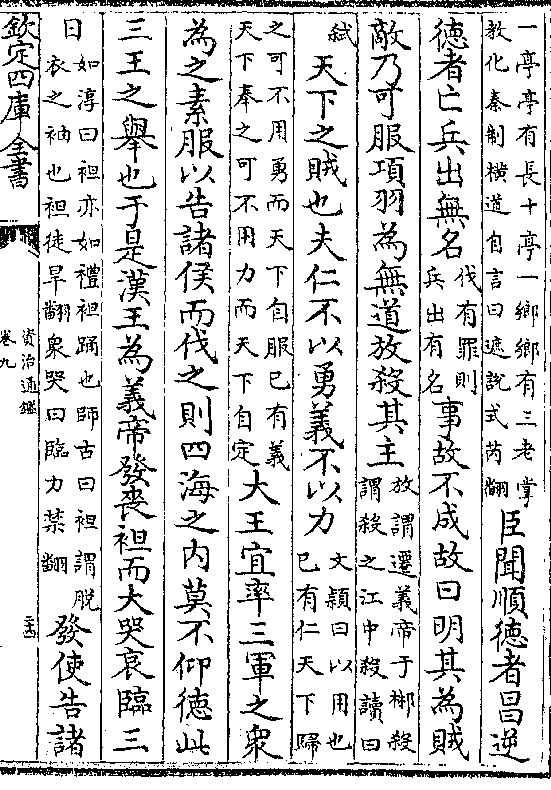 一亭亭有長十亭一鄉鄉有三老掌
教化秦制橫道自言曰遮說式芮翻
臣聞順德者昌逆
德者亡兵出無名
伐有罪則
兵出有名
事故不成故曰明其為賊
敵乃可服項羽為無道放殺其主
放謂遷義帝于郴殺
謂殺之江中殺讀曰
弑
天下之賊也夫仁不以勇義不以力
文穎曰以用也
已有仁天下歸
之可不用勇而天下自服已有義
天下奉之可不用力而天下自定
大王宜率三軍之衆
為之素服以告諸侯而伐之則四海之內莫不仰德此
三王之舉也于是漢王為義帝發喪袒而大哭哀臨三
日
如淳曰袒亦如禮袒踊也師古曰袒謂脫
衣之袖也袒徒旱翻衆哭曰臨力禁翻
發使告諸
欽定四庫全書
資治通鑑
卷九
二十四